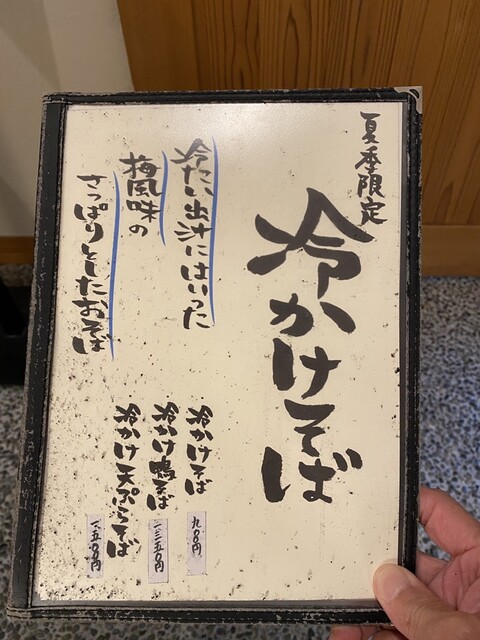 夏季限定
冷かけそば
冷たい出汁にはいった
梅風味の
さっぱりとしたおそば
冷かけそば 九八〇円
冷かけ鴨そば 一三五〇円
冷かけ天ぷらそば 一五〇〇円